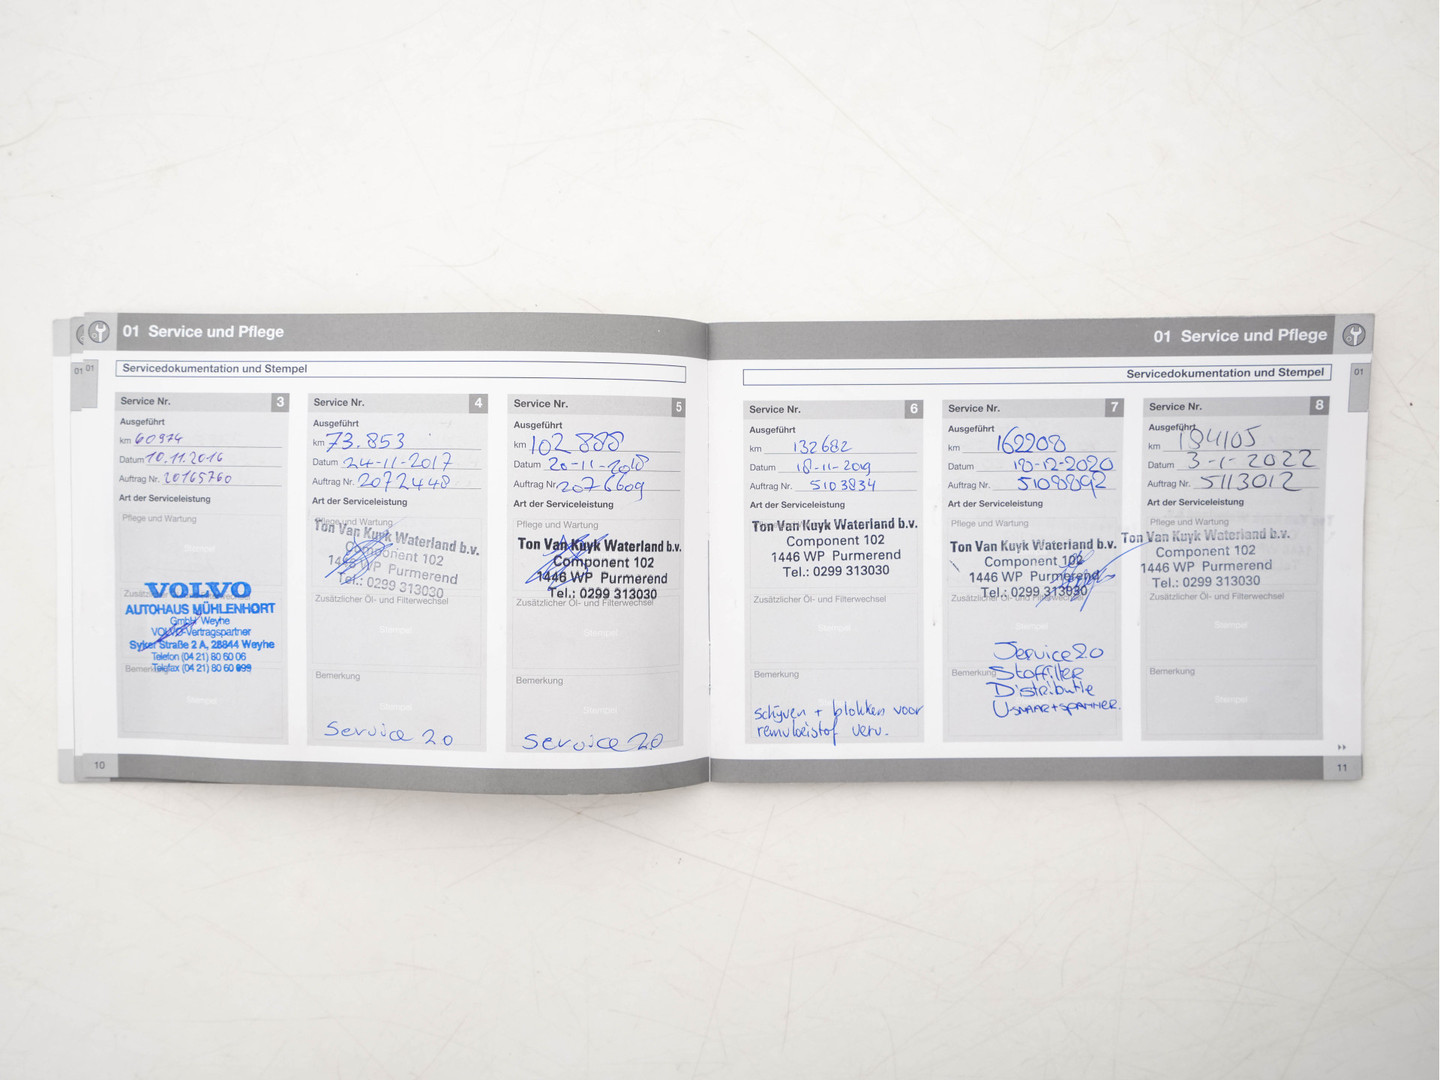 01 Service und Pflege
Servicedokumentation und Stempel
01 01
Service Nr. 3
Ausgeführt
km 60974
Datum 10.11.2016
Auftrag Nr. 20165760
Art der Serviceleistung
Pflege und Wartung
Stempel
VOLVO
AUTOHAUS MÜHLENHORT
GmbH Weyhe
VOLVO-Vertragspartner
Syker Straße 2 A, 28844 Weyhe
Telefon (04 21) 80 60 06
Telefax (04 21) 80 60 699
Stempel
Service Nr. 4
Ausgeführt
km 73.853
Datum 24-11-2017
Auftrag Nr. 2072448
Art der Serviceleistung
Pflege und Wartung
Ton Van Kuyk Waterland b.v.
Component 102
1446 WP Purmerend
Tel.: 0299 313030
Zusätzlicher Öl- und Filterwechsel
Stempel
Bemerkung
Stempel
Service 2.0
Service Nr. 5
Ausgeführt
km 102 888
Datum 20-11-2018
Auftrag Nr. 2076609
Art der Serviceleistung
Pflege und Wartung
Ton Van Kuyk Waterland b.v.
Component 102
1446 WP Purmerend
Tel.: 0299 313030
Zusätzlicher Öl- und Filterwechsel
Stempel
Bemerkung
Stempel
Service 2.0
10
01 Service und Pflege
Servicedokumentation und Stempel
01
Service Nr. 6
Ausgeführt
km 132682
Datum 18-11-2019
Auftrag Nr. 5103834
Art der Serviceleistung
Ton Van Kuyk Waterland b.v.
Component 102
1446 WP Purmerend
Tel.: 0299 313030
Zusätzlicher Öl- und Filterwechsel
Stempel
Bemerkung
schijven + blokken voor
remvloeistof verv.
Service Nr. 7
Ausgeführt
km 162208
Datum 18-12-2020
Auftrag Nr. 5108892
Art der Serviceleistung
Pflege und Wartung
Ton Van Kuyk Waterland b.v.
Component 102
1446 WP Purmerend
Tel.: 0299 313030
Zusätzlicher Öl- und Filterwechsel
Service 2.0
Bemerkung Stoffilter
Distributie
Vsnaar+spanner.
Service Nr. 8
Ausgeführt
km 184105
Datum 3-1-2022
Auftrag Nr. 5113012
Art der Serviceleistung
Pflege und Wartung
Ton Van Kuyk Waterland b.v.
Component 102
1446 WP Purmerend
Tel.: 0299 313030
Zusätzlicher Öl- und Filterwechsel
Stempel
Bemerkung
Stempel
11